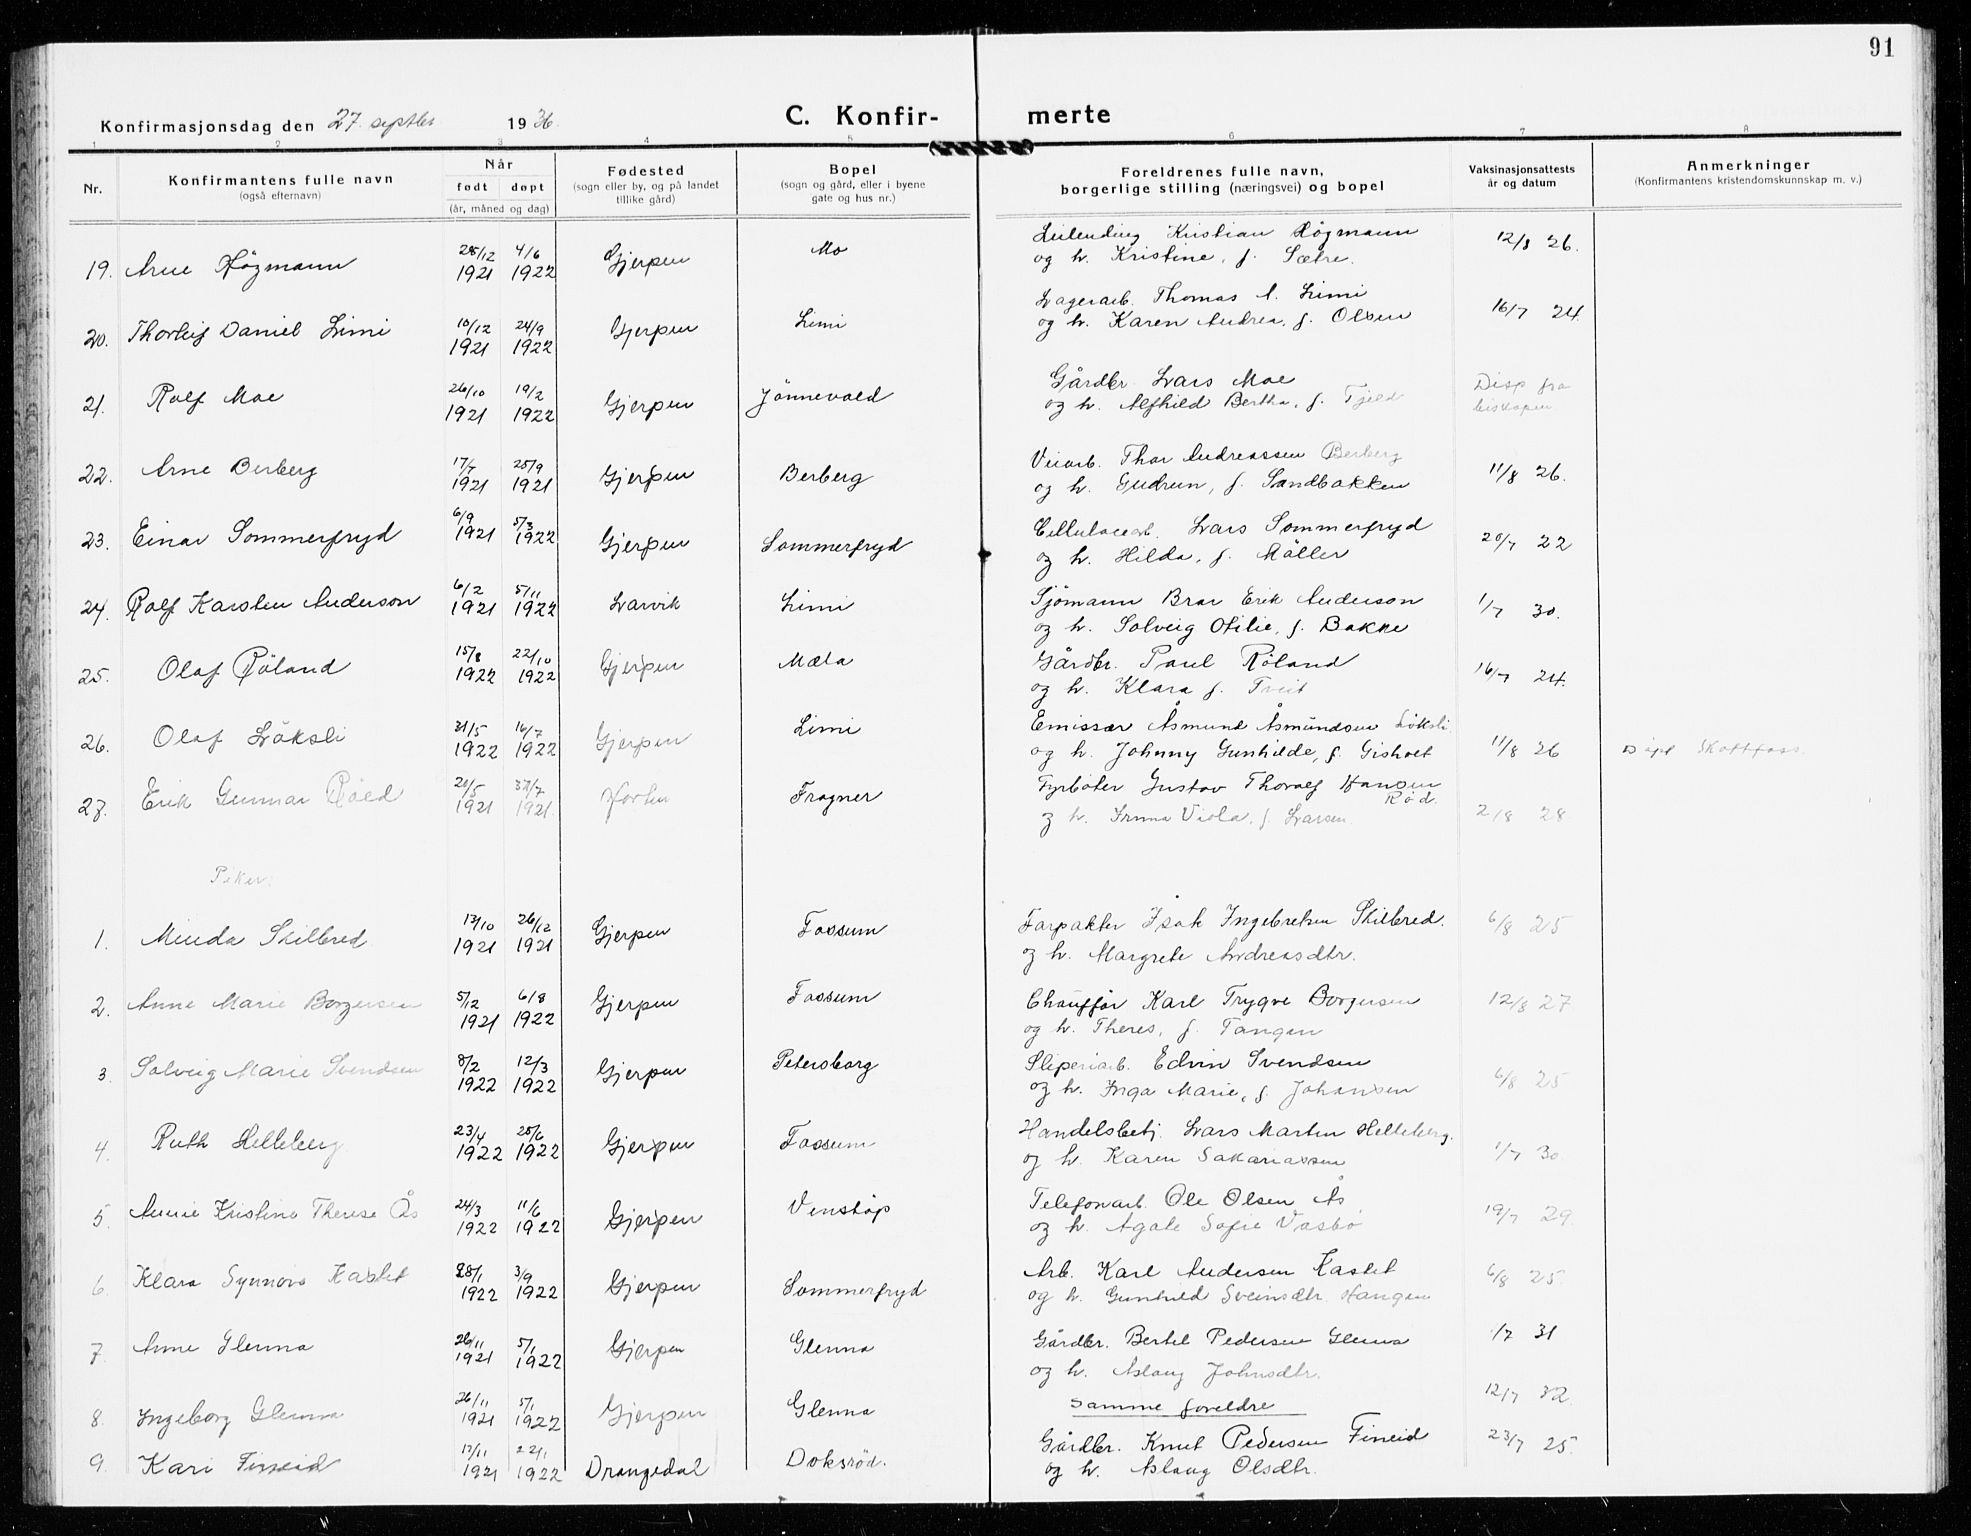 91
Konfirmasjonsdag den 27. septbr. 1936. C. Konfir- merte
1 2 3 4 5 6 7 8
Nr. Konfirmantens fulle navn (også efternavn) Når født døpt (år, måned og dag) Fødested (sogn eller by, og på landet tillike gård) Bopel (sogn og gård, eller i byene gate og hus nr.) Foreldrenes fulle navn, borgerlige stilling (næringsvei) og bopel Vaksinasjonsattests år og datum Anmerkninger (Konfirmantens kristendomskunnskap m. v.)
19. Arne Högmann 28/12 1921 4/6 1922 Gjerpen Mo Leilending Kristian Högmann 12/8 26.
og h. Kristine, f. Sætre.
20. Thorleif Daniel Limi 10/12 1921 24/9 1922 Gjerpen Limi Lagerarb. Thomas A. Limi 16/7 24.
og h. Karen Andrea, f. Olsen
21. Rolf Moe 26/10 1921 19/2 1922 Gjerpen Jönnevald Gårdbr. Lars Moe Disp fra
og h. Alfhild Bertha, f. Fjeld biskopen
22. Arne Berberg 17/7 1921 25/9 1921 Gjerpen Berberg Veiarb. Thor Andreassen Berberg 11/8 26.
og h. Gudrun, f. Sandbakken
23. Einar Sommerfryd 6/9 1921 5/3 1922 Gjerpen Sommerfryd Cellulosearb. Lars Sommerfryd 20/7 22
og h. Hilda, f. Möller
24. Rolf Karsten Anderson 6/2 1921 5/11 1922 Larvik Limi Sjömann Bror Erik Anderson 1/7 30.
og h. Solveig Otilie, f. Bakke
25. Olaf Röland 15/8 1922 22/10 1922 Gjerpen Mæla Gårdbr. Paul Röland 16/7 24.
og h. Klara f. Tveit
26. Olaf Löksli 31/5 1922 16/7 1922 Gjerpen Limi Emissær Åsmund Åsmundsen Löksli 11/8 26 Döpt Skotfoss.
og h. Johnny Gunhilde, f. Gisholt
27. Erik Gunnar Röed 20/5 1921 31/7 1921. Horten Fragner Fyrböter Gustav Thoralf Hansen Röd. 2/8 28.
og h. Irma Viola, f. Larsen.
Piker:
1. Minda Skilbred 13/10 1921 26/12 1921 Gjerpen Fossum Forpakter Isak Ingebretsen Skilbred. 6/8 25
og h. Margrete Andreasdtr.
2. Anne Marie Borgersen 5/12 1921 6/8 1922 Gjerpen Fossum Chaufför Karl Trygve Borgersen 12/8 27.
og h. Theres, f. Tangen
3. Solveig Marie Svendsen 8/2 1922 12/3 1922 Gjerpen Petersborg Sliperiarb. Edvin Svendsen 6/8 25
og h. Inga Marie, f. Johansen
4. Ruth Helleberg 23/4 1922 25/6 1922 Gjerpen Fossum Handelsbetj. Lars Martin Helleberg. 1/7 30
og h. Karen Sakariassen
5. Annie Kristine Therese Ås 24/3 1922 11/6 1922 Gjerpen Venstöp Telefonarb. Ole Olsen Ås 19/7 29.
og h. Agate Sofie Vasbö
6. Klara Synnöve Kastet 28/1 1922 3/9 1922 Gjerpen Sommerfryd Arb. Karl Andersen Kastet 6/8 25.
og h. Gunhild Sveinsdtr. Haugen
7. Anne Glenna 26/11 1921 5/1 1922 Gjerpen Glenna Gårdbr. Bertel Pedersen Glenna 1/7 31
og h. Aslaug Johnsdtr.
8. Ingeborg Glenna 26/11 1921 5/1 1922 Gjerpen Glenna Samme foreldre 12/7 32.
9. Kari Fineid 17/11 1921 22/1 1922 Drangedal Doksröd. Gårdbr. Knut Pedersen Fineid 23/7 25.
og h. Aslaug Olsdtr.